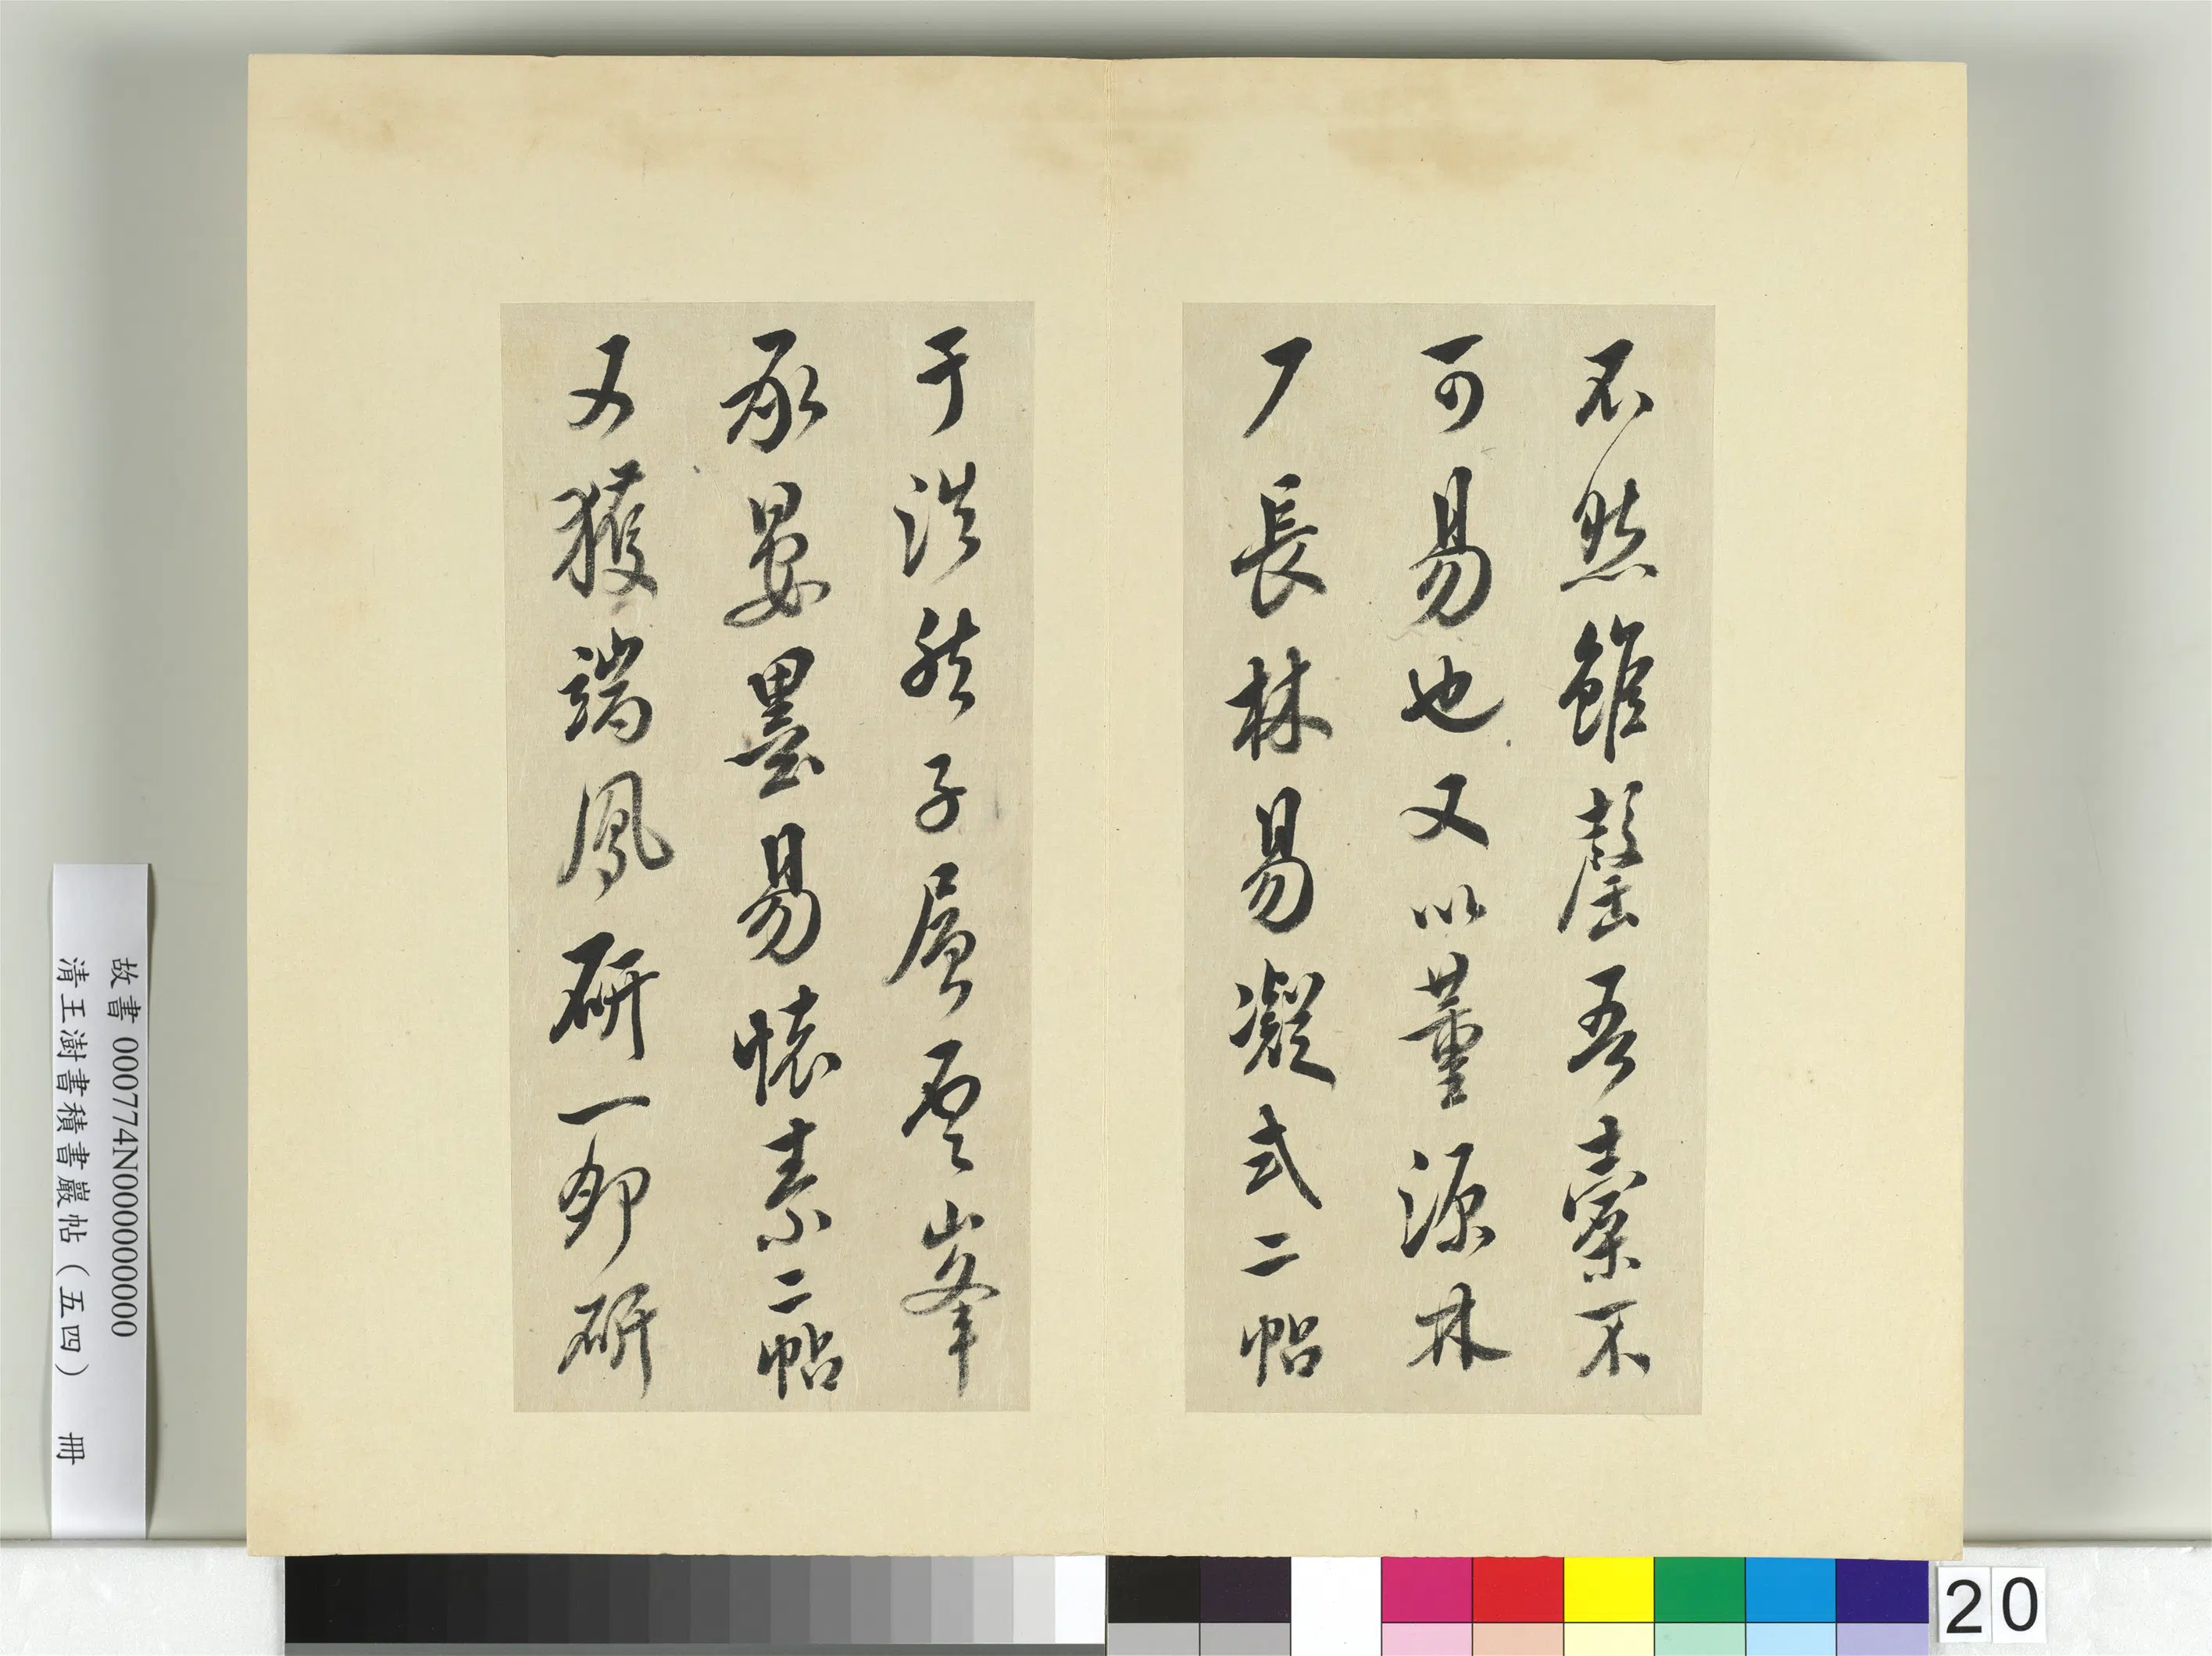 不然雖罄吾橐不
可易也又以董源林
長林易凝式二帖
于然子層雲峯
承晏墨易懷素二帖
又獲端鳳研一卵研
故書 000774N000000000
清王澍書積書巖帖（五四） 冊
20